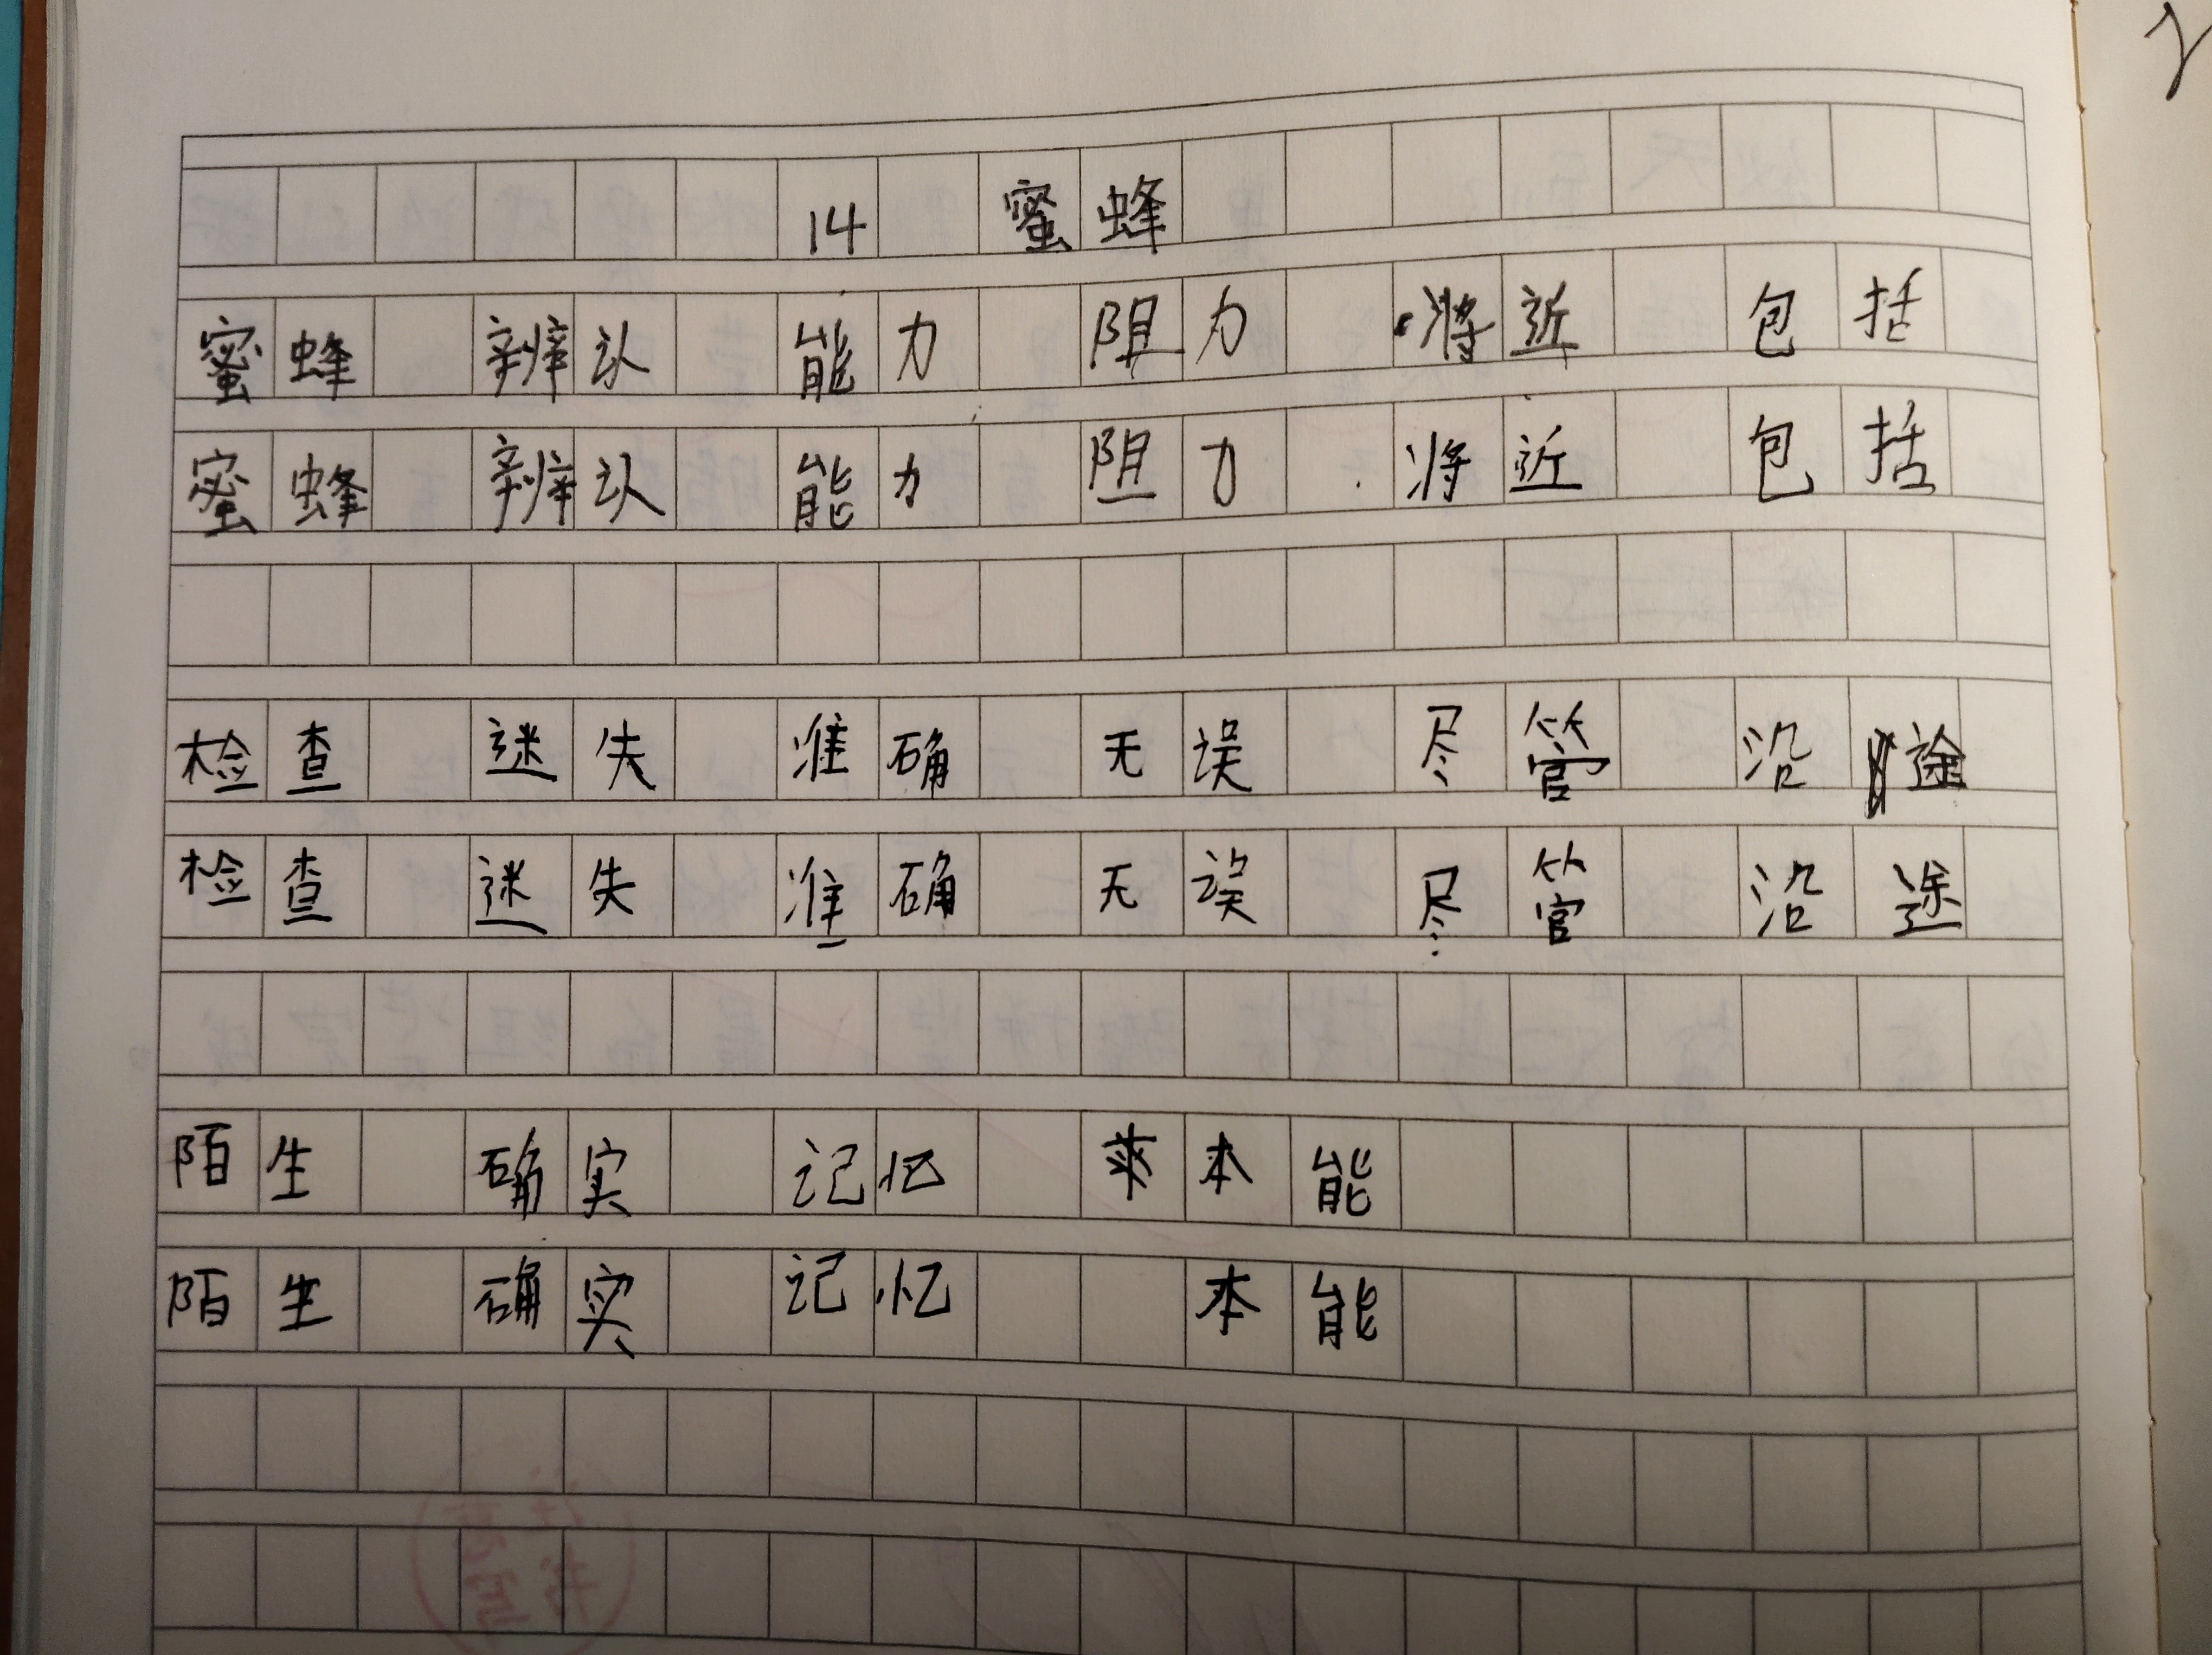 14 蜜蜂
蜜蜂 辨认 能力 阻力 将近 包括
蜜蜂 辨认 能力 阻力 将近 包括
检查 迷失 准确 无误 尽管 沿途
检查 迷失 准确 无误 尽管 沿途
陌生 确实 记忆 本能
陌生 确实 记忆 本能